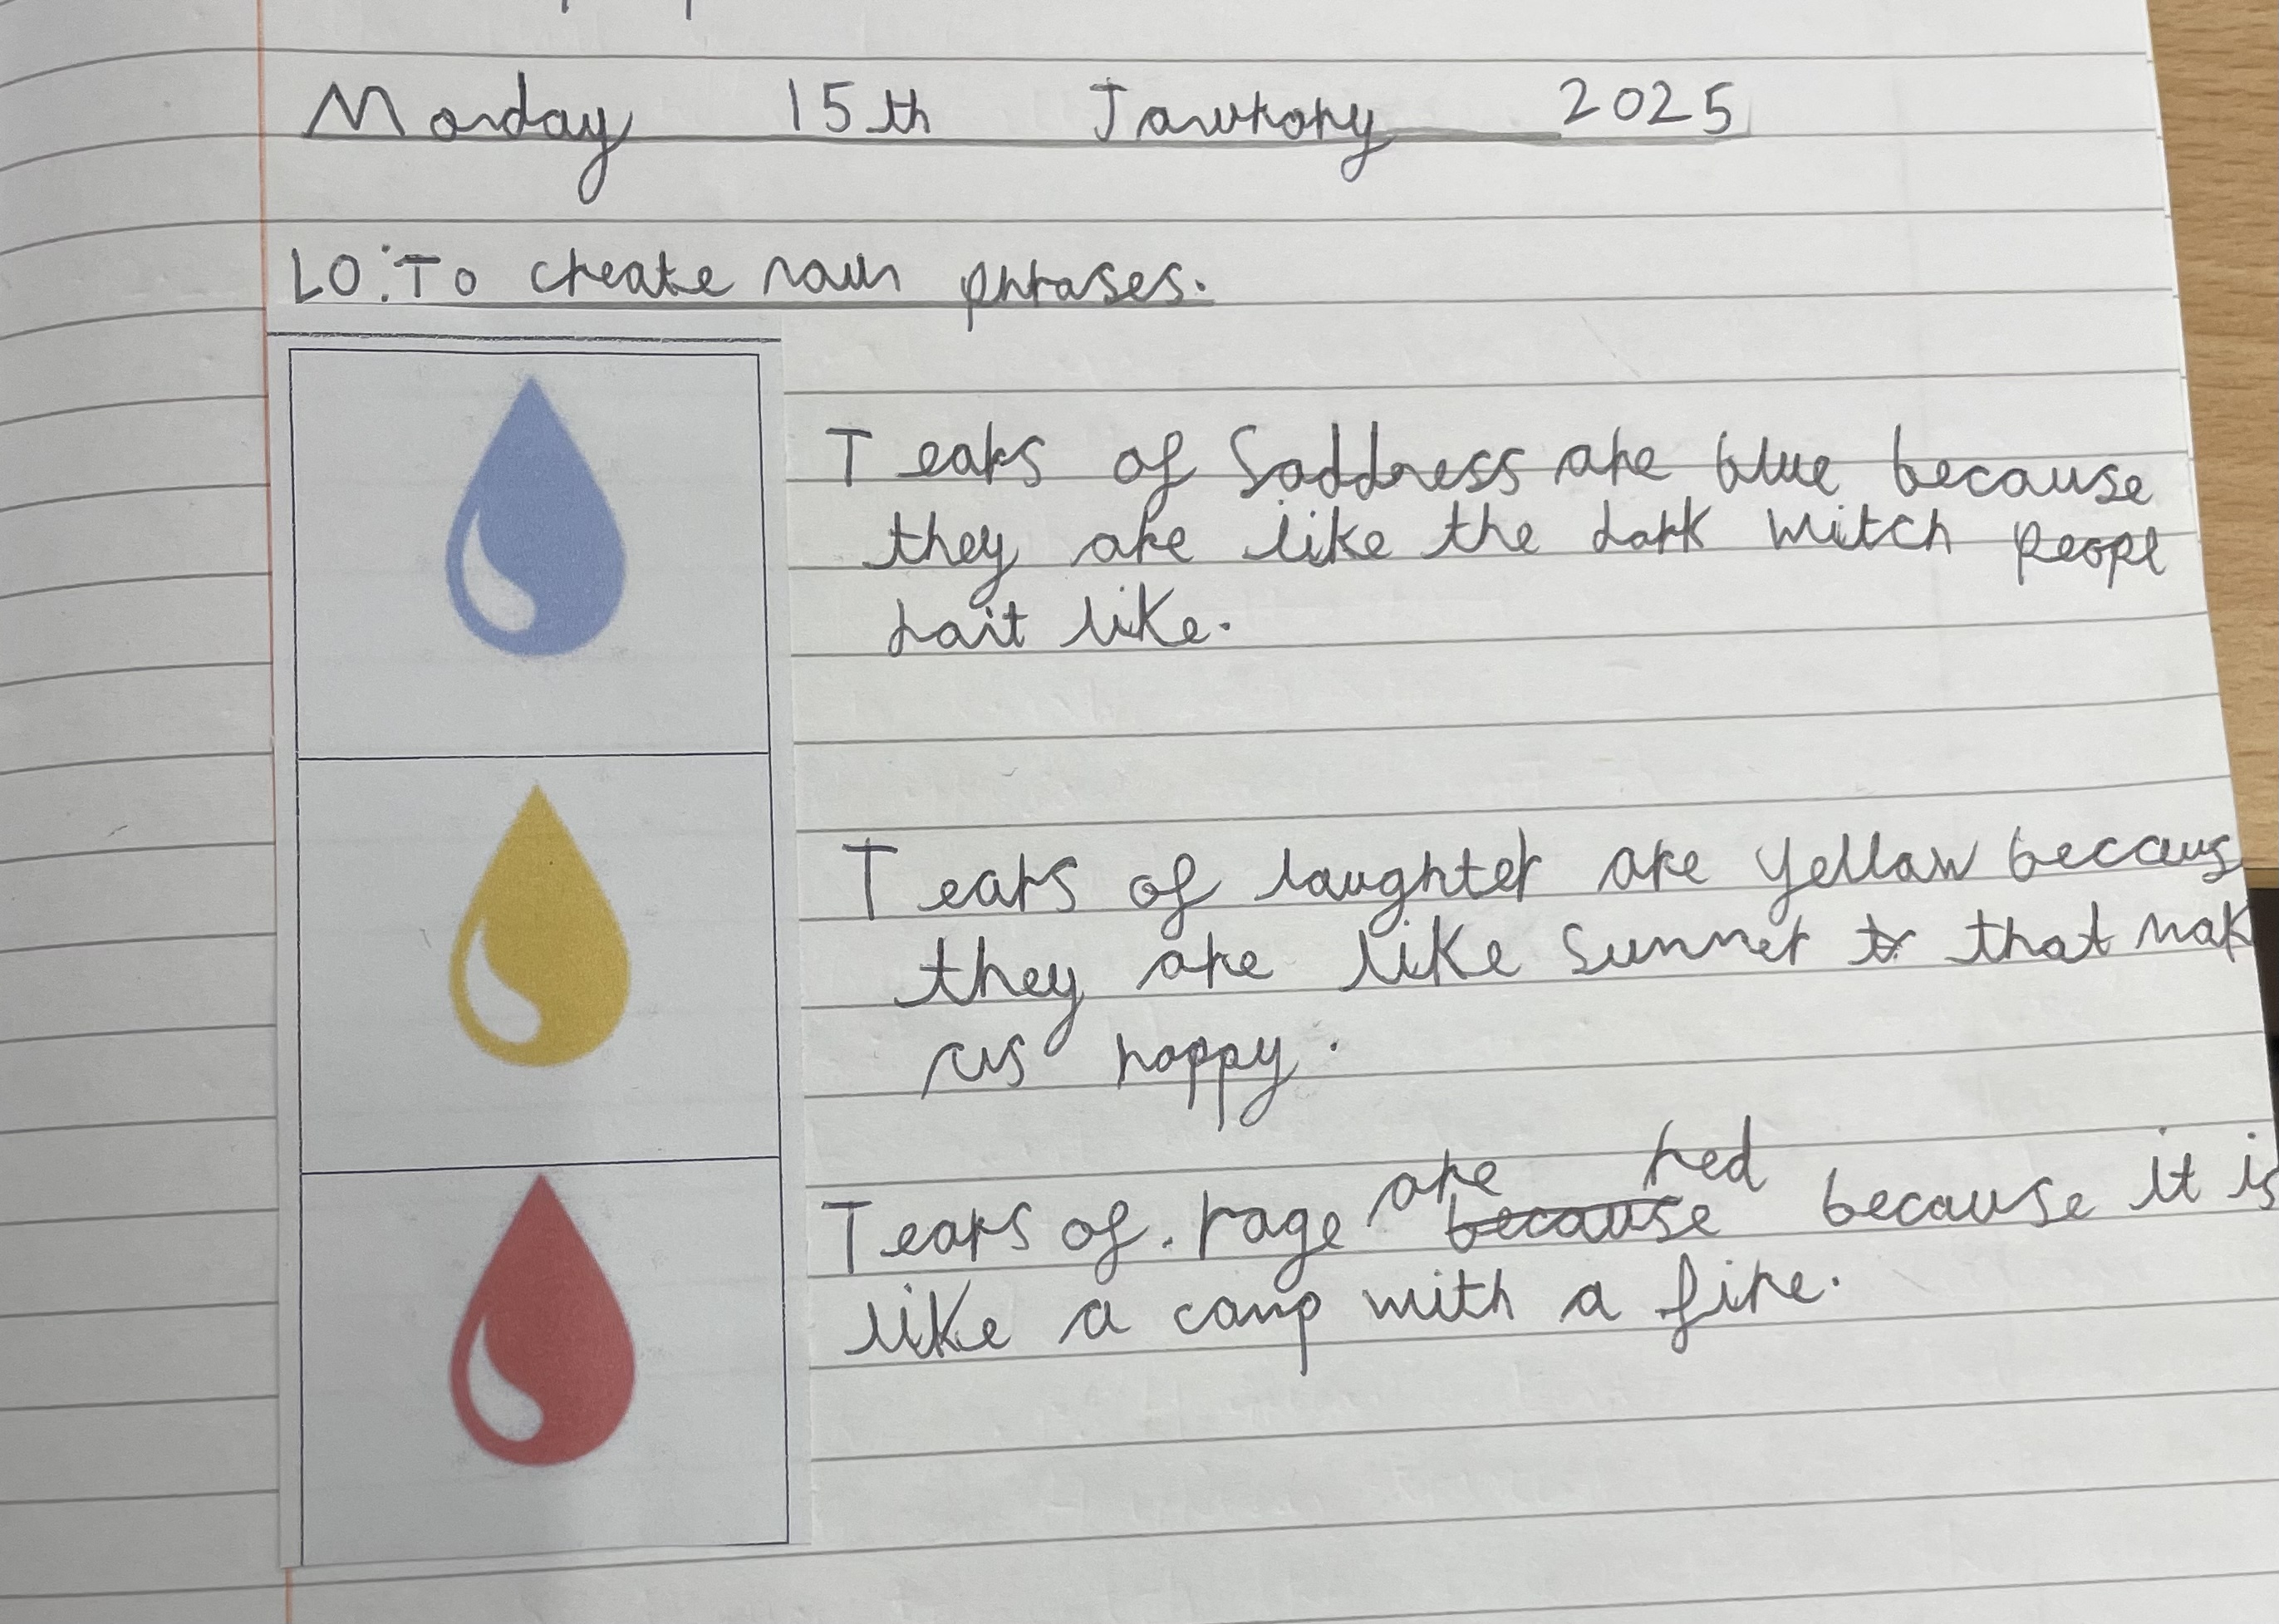 Monday 15th Jawrary 2025
LO: To create noun phrases.
Tears of Saddness are blue because
they are like the dark witch peopl
dait like.
Tears of laughter are yellow becaus
they are like Summer that mak
us happy.
are red
Tears of. rage because because it is
like a camp with a fire.